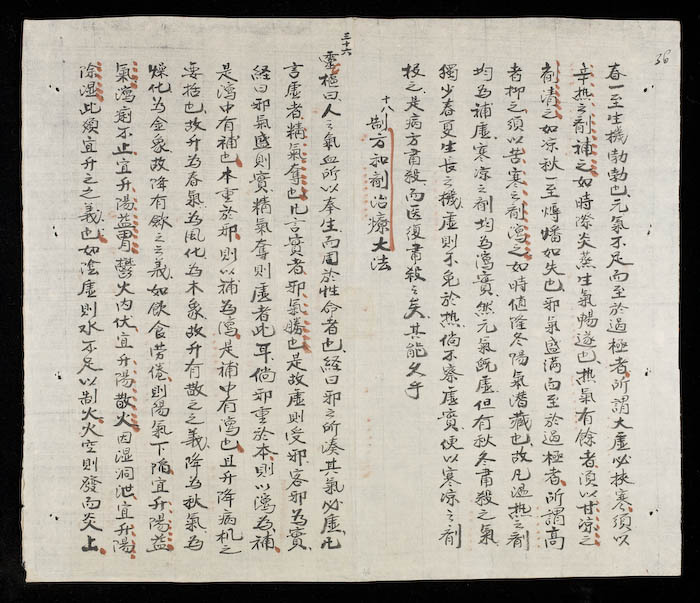 38
春一至生機勃勃也元氣不足而至於過極者所謂大虛必挾寒須以
辛熱之劑補之如時際炎蒸生氣暢遂也熱氣有餘者須以甘涼之
劑清之如涼秋一至熇燔如失也邪氣盛滿而至於過極者所謂高
者抑之須以苦寒之劑瀉之如時值隆冬陽氣潛藏也故凡溫熱之劑
均為補虛寒涼之劑均為瀉實然元氣既虛但有秋冬肅殺之氣
獨少春夏生長之機虛則不免於熱倘不察虛實便以寒涼之劑
投之是病方肅殺而医復肅殺之矣其能久乎
十八制方和劑治療大法
三十六
靈樞曰人之氣血所以奉生而周於性命者也経曰邪之所湊其氣必虛凡
言虛者精氣奪也凡言實者邪氣勝也是故虛則受邪客邪為實
経曰邪氣盛則實精氣奪則虛者此耳倘邪重於本則以瀉為補
是瀉中有補也本重於邪則以補為瀉是補中有瀉也且升降病机之
要括也故升為春氣為風化為木象故升有散之之義降為秋氣為
燥化為金象故降有斂之之義如飲食劳倦則陽氣下陷宜升陽益
氣瀉痢不止宜升陽益胃鬱火內伏宜升陽散火因湿洞泄宜升陽
除湿此類宜升之之義也如陰虛則水不足以制火火空則發而炎上